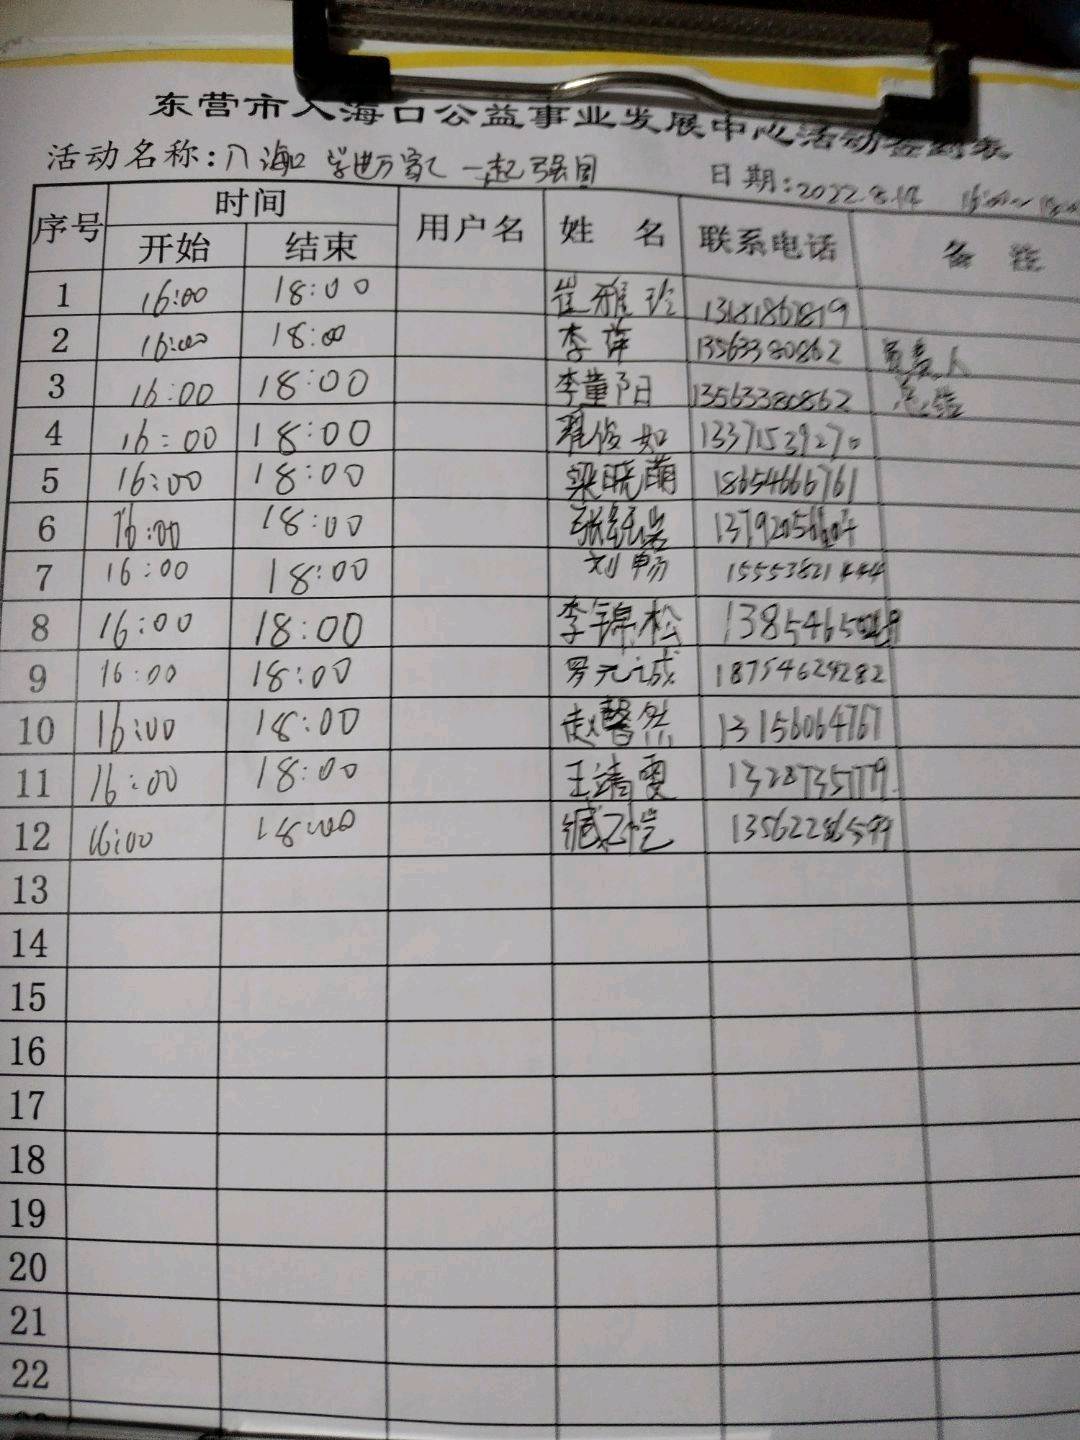 东营市入海口公益事业发展中心活动签到表
活动名称:入海口 学进万家 一起强国 日期:2022.8.14 16:00~
序号 时间 用户名 姓 名 联系电话 备 注
开始 结束
1 16:00 18:00 崔雅玲
2 16:00 18:00 李萍 13563380862 负责人
3 16:00 18:00 李董阳 13563380862 总结
4 16:00 18:00 翟俊如 13371539270
5 16:00 18:00 梁晓萌 18654666761
6 16:00 18:00
7 16:00 18:00 刘畅 15553821444
8 16:00 18:00 李锦松
9 16:00 18:00 罗元诚 18754629282
10 16:00 18:00 赵馨然 13156064767
11 16:00 18:00 王靖雯
12 16:00 18:00
13
14
15
16
17
18
19
20
21
22